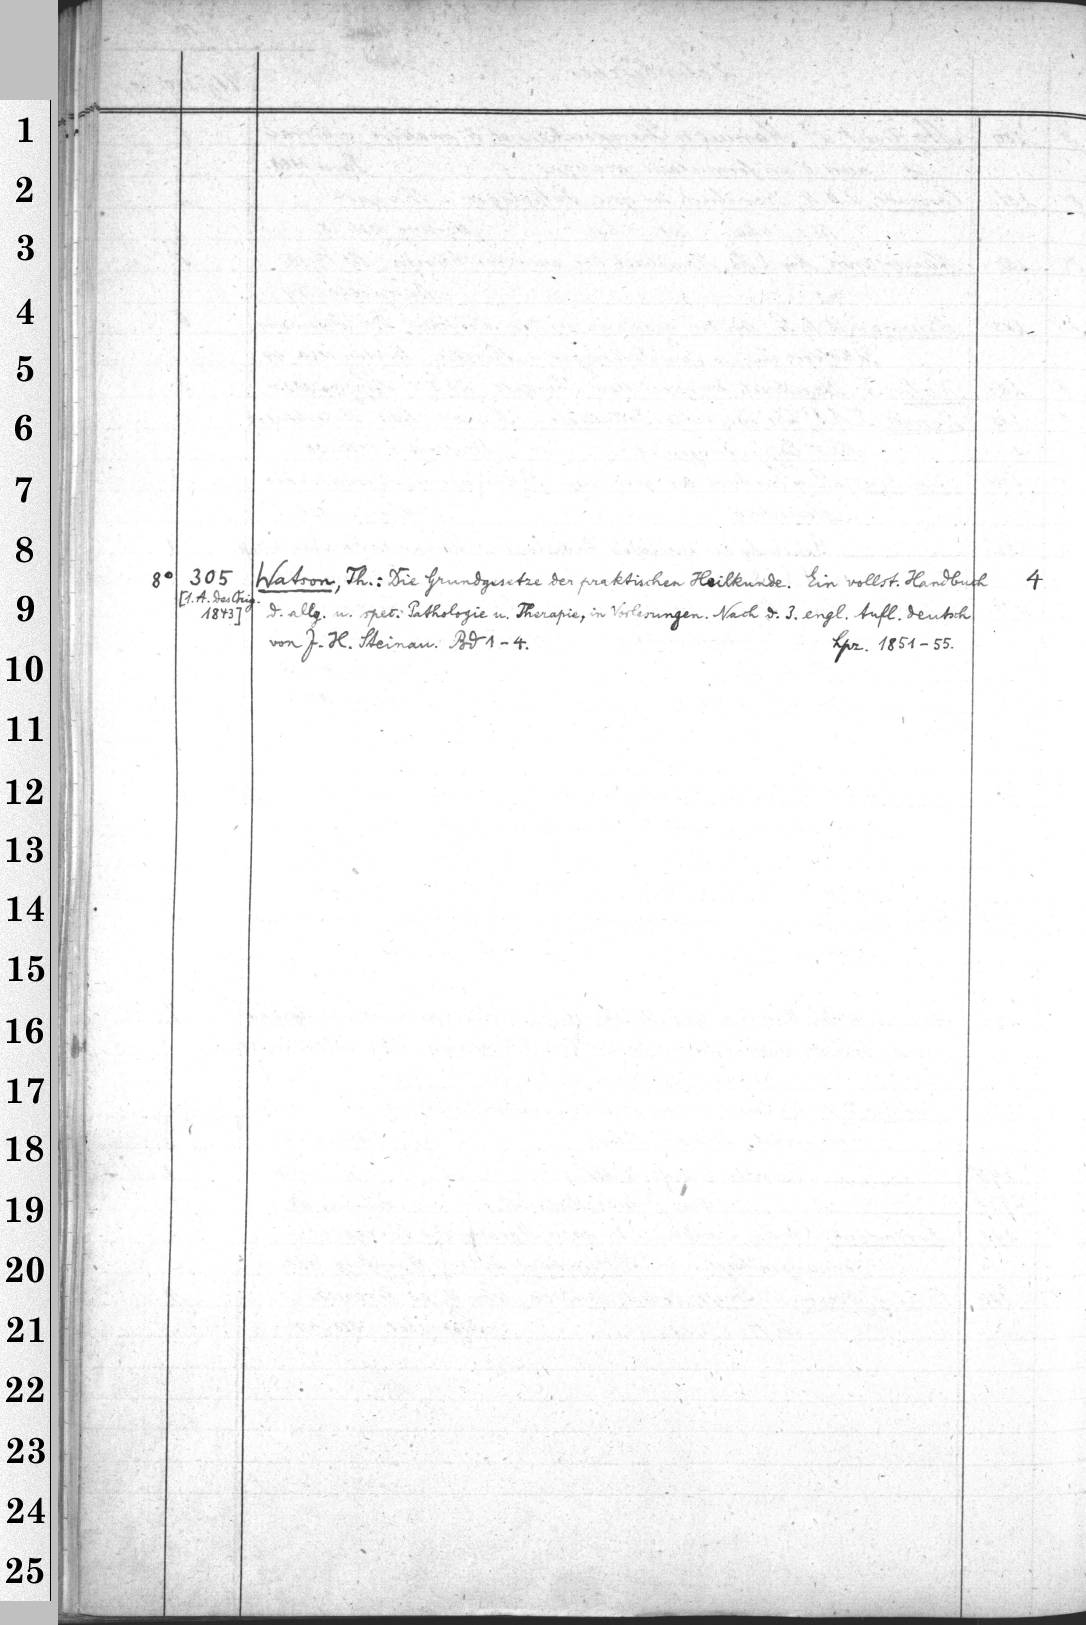 1
2
3
4
5
6
7
8
8° 305 Watson, Th.: Die Grundgesetze der praktischen Heilkunde. Ein vollst. Handbuch 4
[1. A. des Orig. 1843]
9
d. allg. u. spec. Pathologie u. Therapie, in Vorlesungen. Nach d. 3. engl. Aufl. deutsch
von J. H. Steinau. Bd 1-4. Lpz. 1851-55.
10
11
12
13
14
15
16
17
18
19
20
21
22
23
24
25